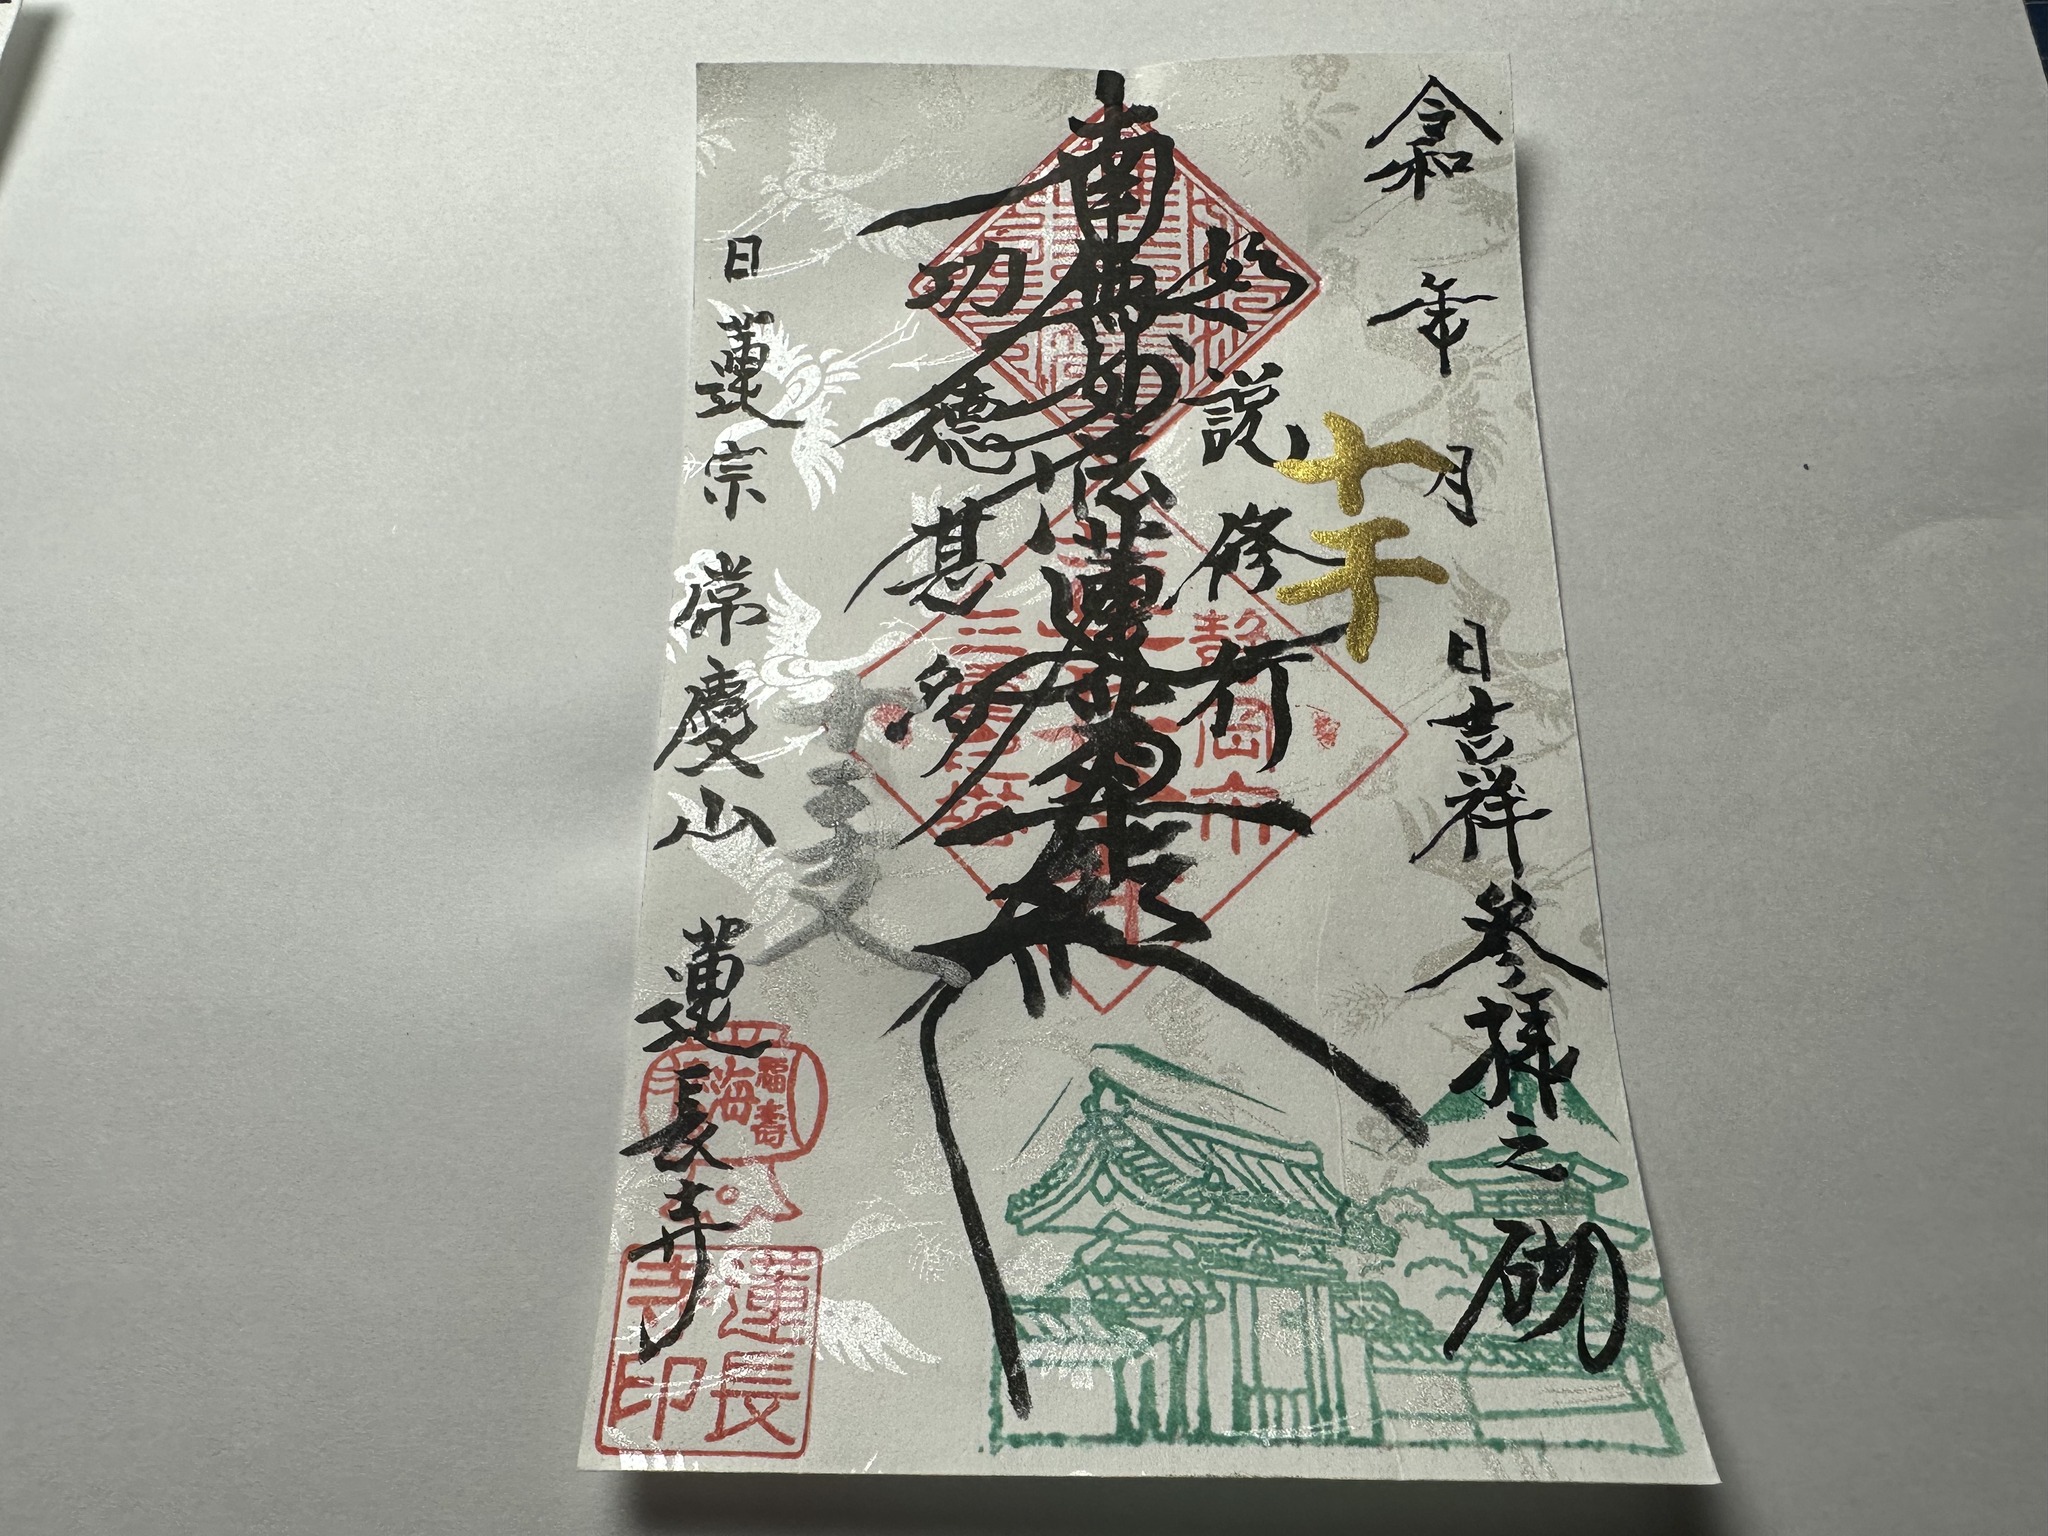 令和 年 月 日吉祥參拜之砌
十干
如説修行
南無妙法蓮華経
功徳甚多
十二支
日蓮宗 常慶山 蓮長寺
静岡市
福壽海
蓮長寺印